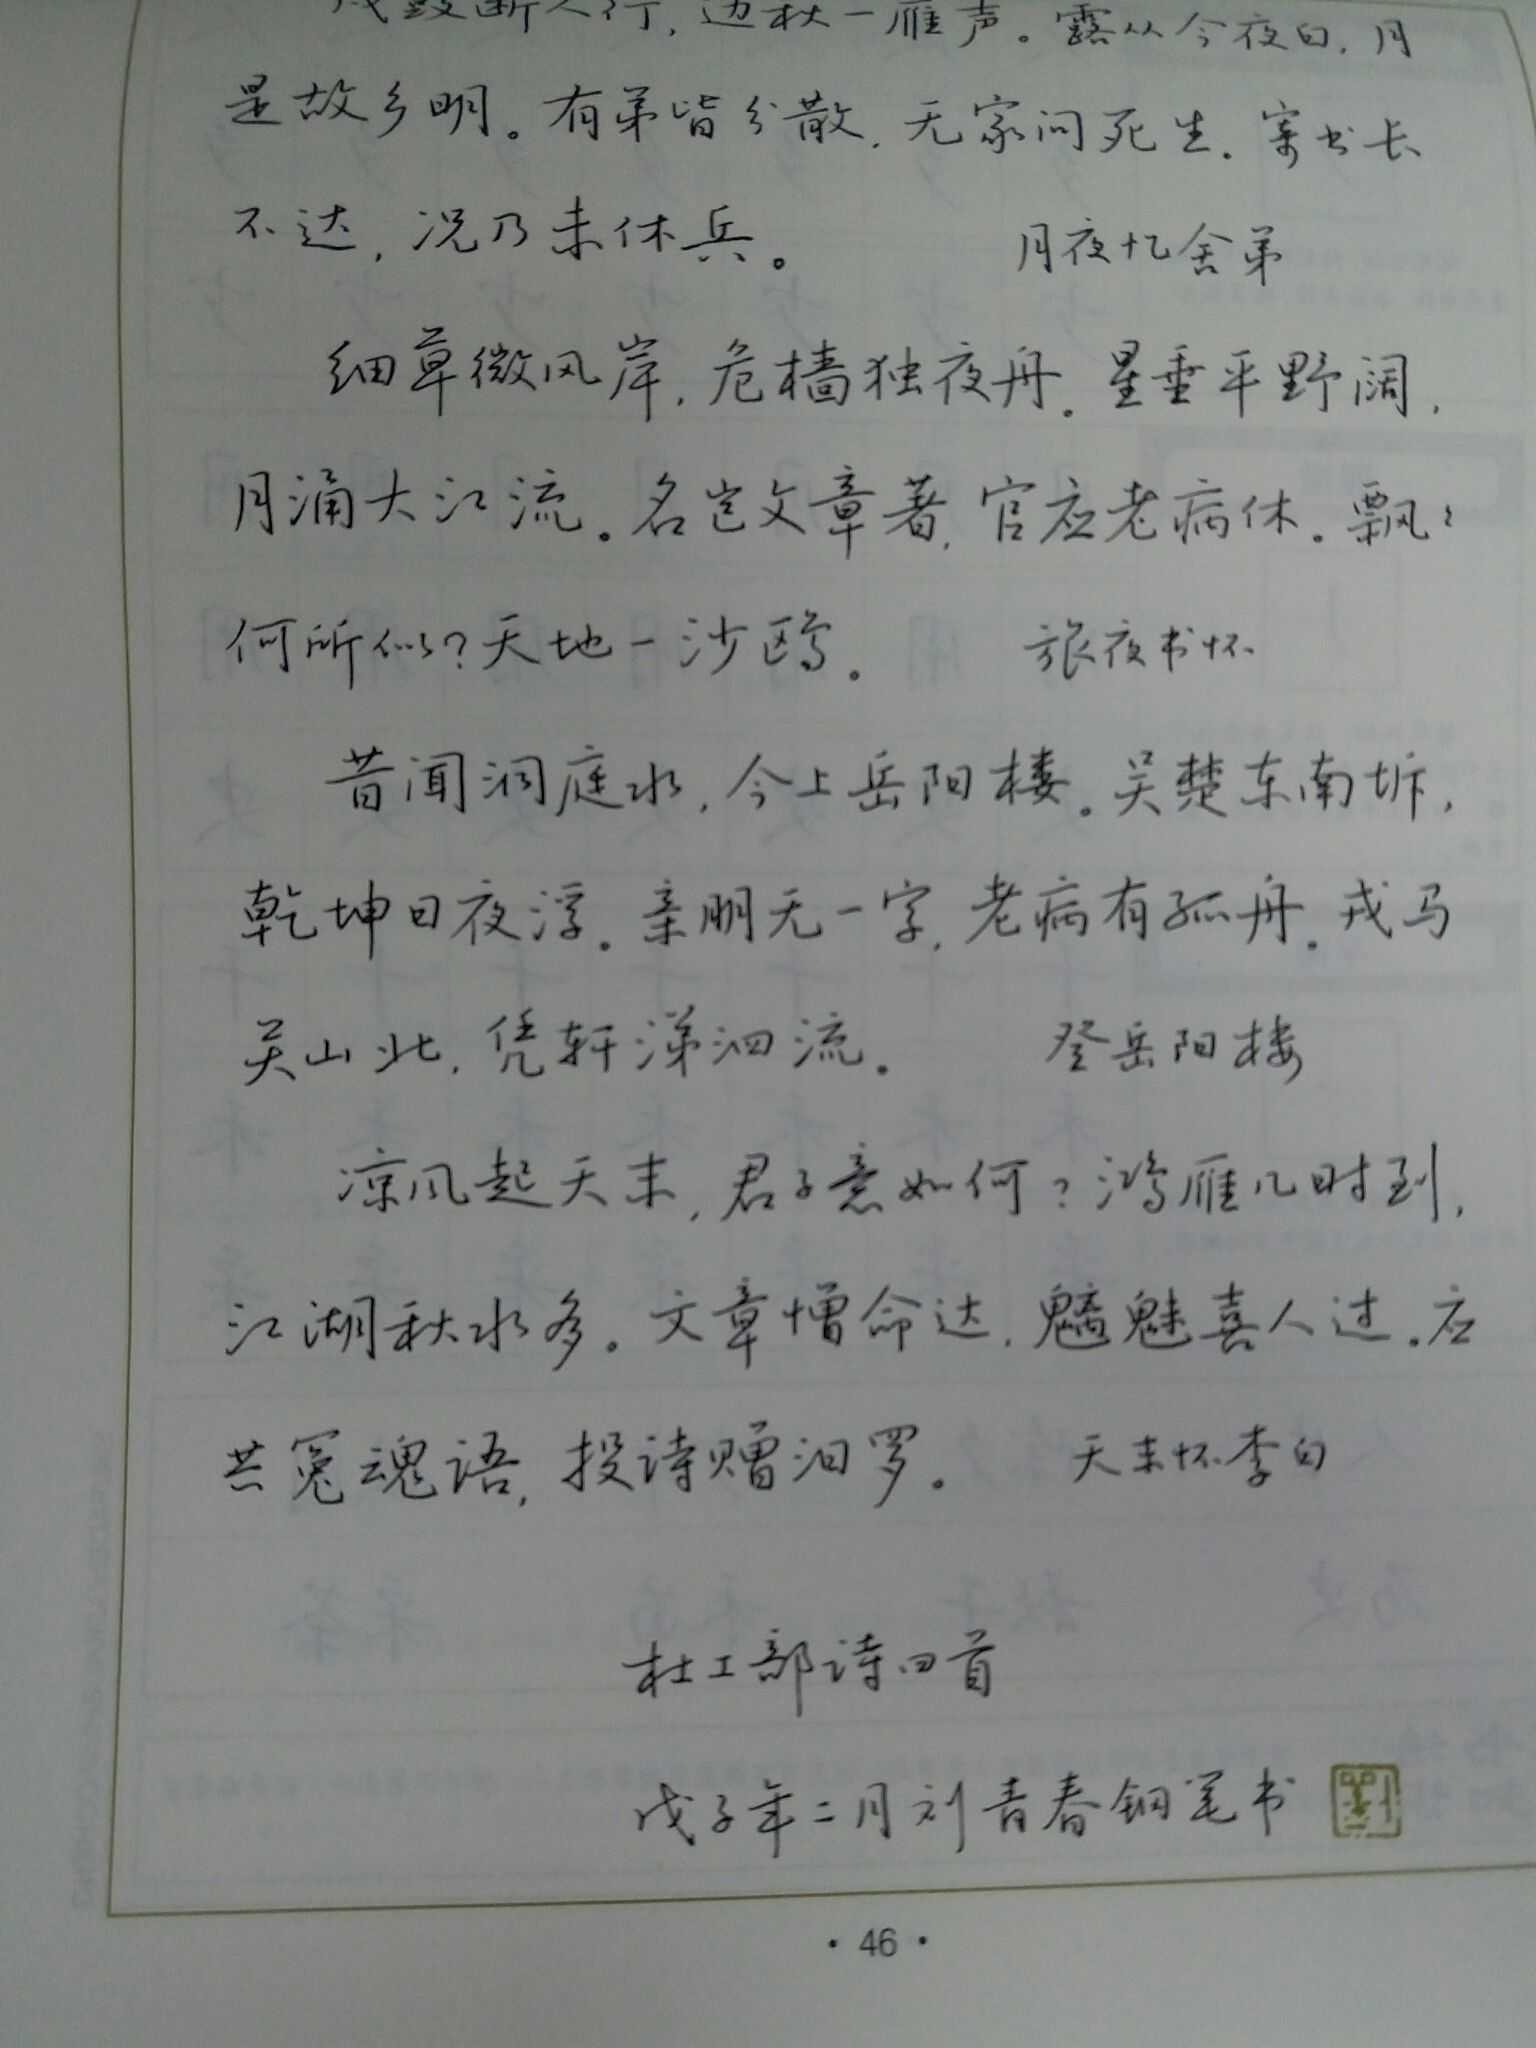 戍鼓断人行，边秋一雁声。露从今夜白，月
是故乡明。有弟皆分散，无家问死生。寄书长
不达，况乃未休兵。 月夜忆舍弟
细草微风岸，危樯独夜舟。星垂平野阔，
月涌大江流。名岂文章著，官应老病休。飘々
何所似？天地一沙鸥。 旅夜书怀
昔闻洞庭水，今上岳阳楼。吴楚东南坼，
乾坤日夜浮。亲朋无一字，老病有孤舟。戎马
关山北，凭轩涕泗流。 登岳阳楼
凉风起天末，君子意如何？鸿雁几时到，
江湖秋水多。文章憎命达，魑魅喜人过。应
共冤魂语，投诗赠汨罗。 天末怀李白
杜工部诗四首
戊子年二月刘青春钢笔书
·46·